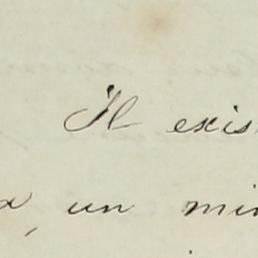 Il exis
a, un min